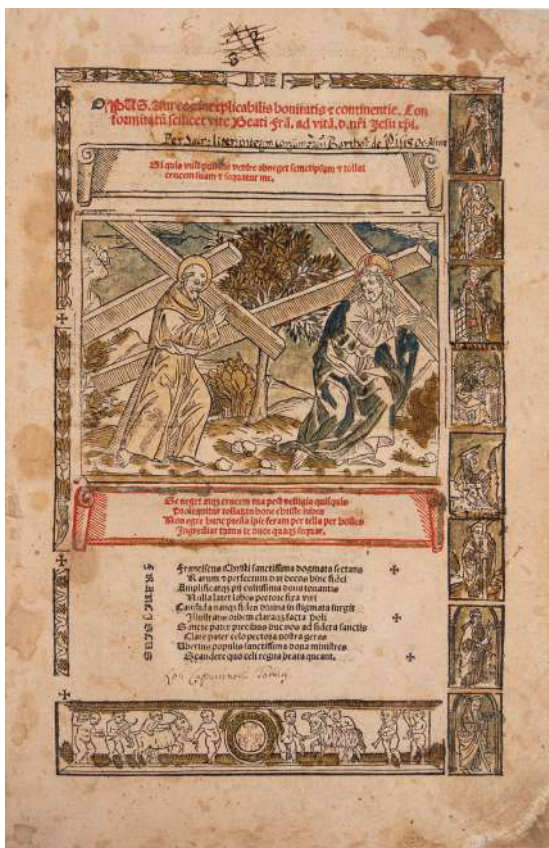 OPUS. Auree & inexplicabilis bonitatis & continentie. Con
formitatū scilicet vite Beati Frā. ad vitā. d. nr̄i Jesu xp̄i.
Barthol. de Pisis
Si quis vult post me venire abneget semetipsum & tollat
crucem suam & sequatur me.
Se neget atqȝ crucem tua post vestigia quisquis
Prosequitur tollat hunc christe iubes
Non egre hunc ipse feram per tella per hostes
Ingrediar te duce quaqȝ sequar.
Franciscus Christi sanctissima dogmata sectans
Rarum & perfectum dat decus hinc fidei
Amplificatqȝ pii cultissima dona tonantis
Nulla latet labes pectore fixa viri
Candida nanqȝ fides divina in stigmata surgit
Illustrans ordem claraqȝ facta poli
Sancte pater precibus duc nos ad sidera sanctis
Clare pater celo pectora nostra geres
Uberius populis sanctissima dona ministres
Scandere quo celi regna beata queant.